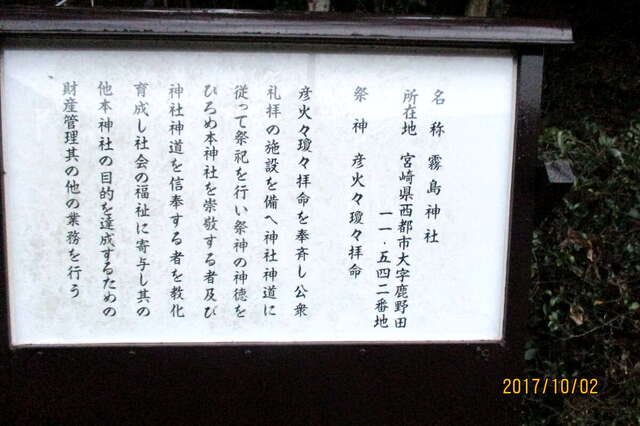 名称 霧島神社
所在地 宮崎県西都市大字鹿野田
一一・五四二番地
祭神 彦火々瓊々拝命
彦火々瓊々拝命を奉斉し公衆
礼拝の施設を備へ神社神道に
従って祭祀を行い祭神の神徳を
ひろめ本神社を崇敬する者及び
神社神道を信奉する者を教化
育成し社会の福祉に寄与し其の
他本神社の目的を達成するための
財産管理其の他の業務を行う
2017/10/02